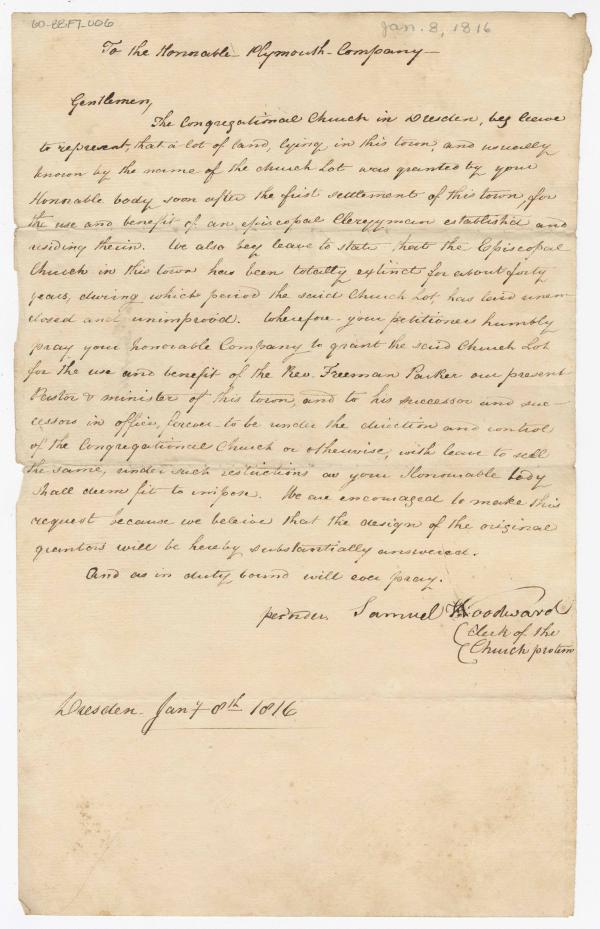 60-88.F7-006
Jan. 8, 1816
To the Honorable Plymouth Company
Gentlemen,
The Congregational Church in Dresden, beg leave
to represent, that a lot of land, lying in this town, and usually
known by the name of the Church Lot was granted by your
Honorable body soon after the first settlement of this town, for
the use and benefit of an episcopal Clergyman established and
residing therein. We also beg leave to state that the Episcopal
Church in this town has been totally extinct for about forty
years, during which period the said Church Lot has laid unen-
closed and unimprov'd. Wherefore your petitioners humbly
pray your honorable Company to grant the said Church Lot
for the use and benefit of the Rev. Freeman Parker our present
Pastor & minister of this town, and to his successor and suc-
cessors in office, forever to be under the direction and control
of the Congregational Church or otherwise, with leave to sell
the same, under such restrictions as your Honourable body
shall deem fit to impose. We are encouraged to make this
request because we beleive that the design of the original
grantors will be hereby substantially answered.
And as in duty bound will ever pray.
per order Samuel Woodward
Clerk of the
Church protem
Dresden Jany 8th 1816